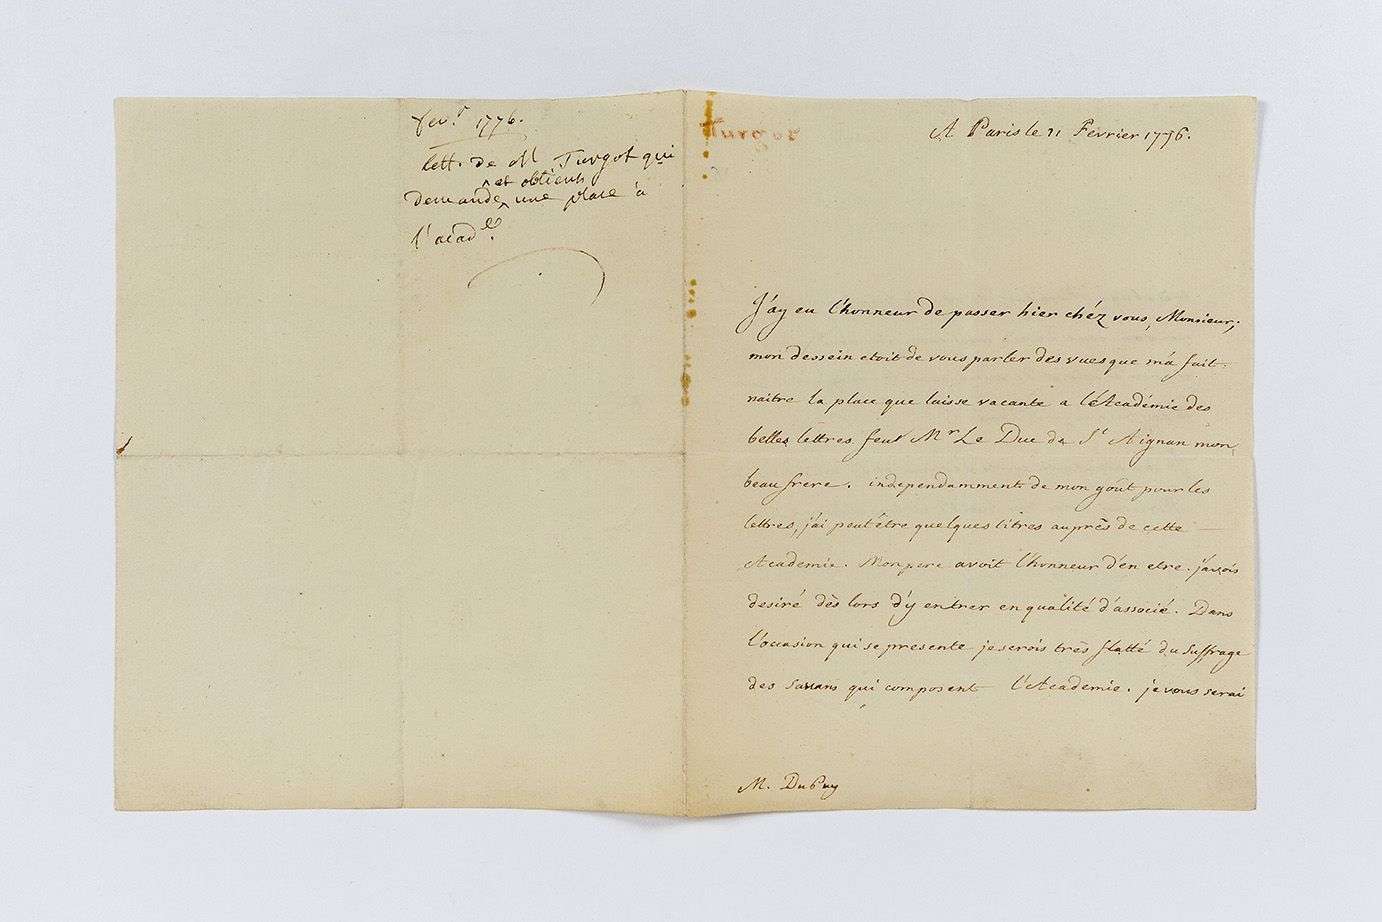 fev.r 1776.
lett. de M Turgot qui
et obtient
demande une place à
l'acad.ie
Turgot
A Paris le 21 Fevrier 1776.
J'ay eu l'honneur de passer hier chéz vous, Monsieur;
mon dessein etoit de vous parler des vues que m'a fait
naitre la place que laisse vacante a l'Académie des
belles lettres feut Mr Le Duc de St Aignan mon
beau frere. independamment de mon gout pour les
lettres, j'ai peut être quelques titres auprès de cette
Academie. Mon pere avoit l'honneur d'en etre. j'avois
desiré dès lors d'y entrer en qualité d'associé. Dans
l'occasion qui se presente je serois très flatté du suffrage
des savans qui composent l'Academie. je vous serai
M. DuPuy